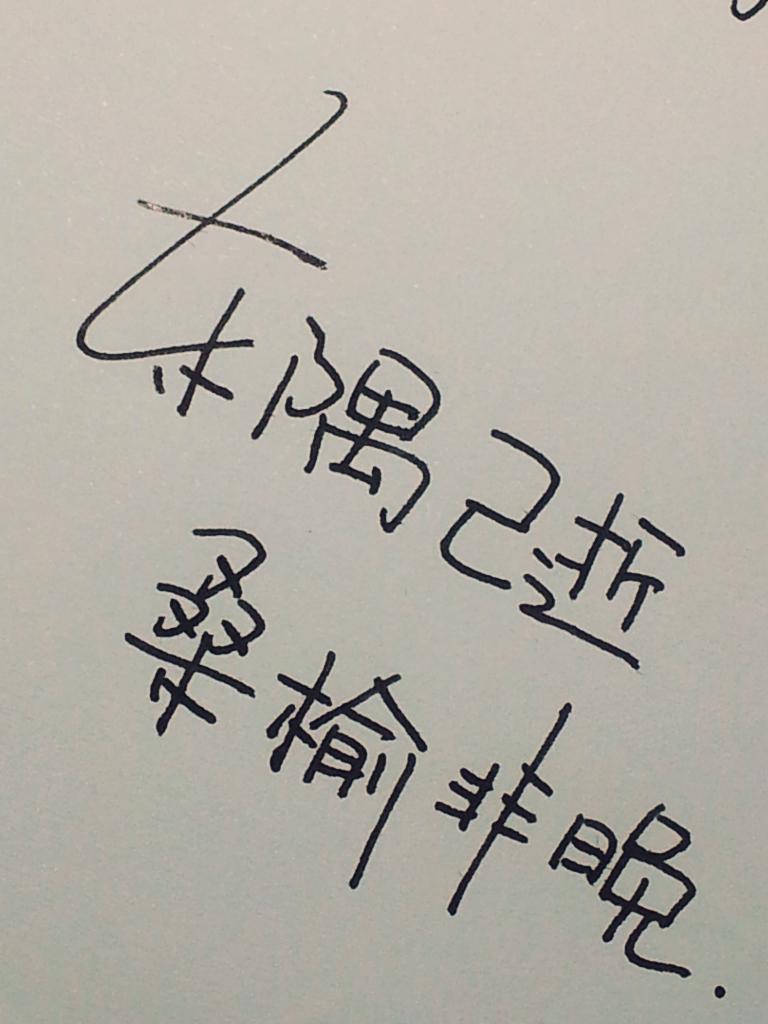 东隅已逝
桑榆非晚.